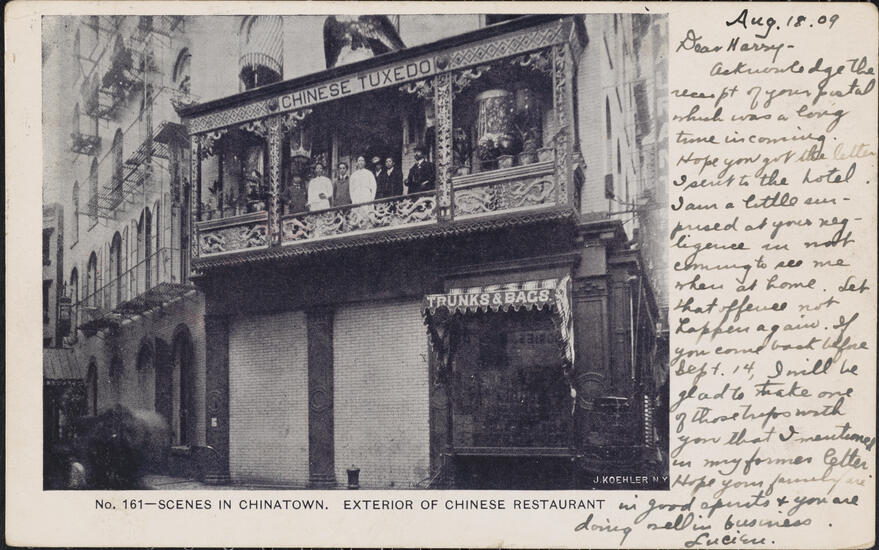 CHINESE TUXEDO
TRUNKS & BAGS.
J. KOEHLER N.Y.
No. 161—SCENES IN CHINATOWN. EXTERIOR OF CHINESE RESTAURANT
Aug. 18. 09
Dear Harry-
Acknowledge the
receipt of your postal
which was a long
time in coming.
Hope you got the letter
I sent to the hotel.
I am a little sur-
prised at your neg-
ligence in not
coming to see me
when at home. Let
that offence not
happen again. If
you come back before
Sept. 14, I will be
glad to take one
of those trips with
you that I mentioned
in my former letter
Hope your family are
in good spirits & you are
doing well in business.
Lucien.